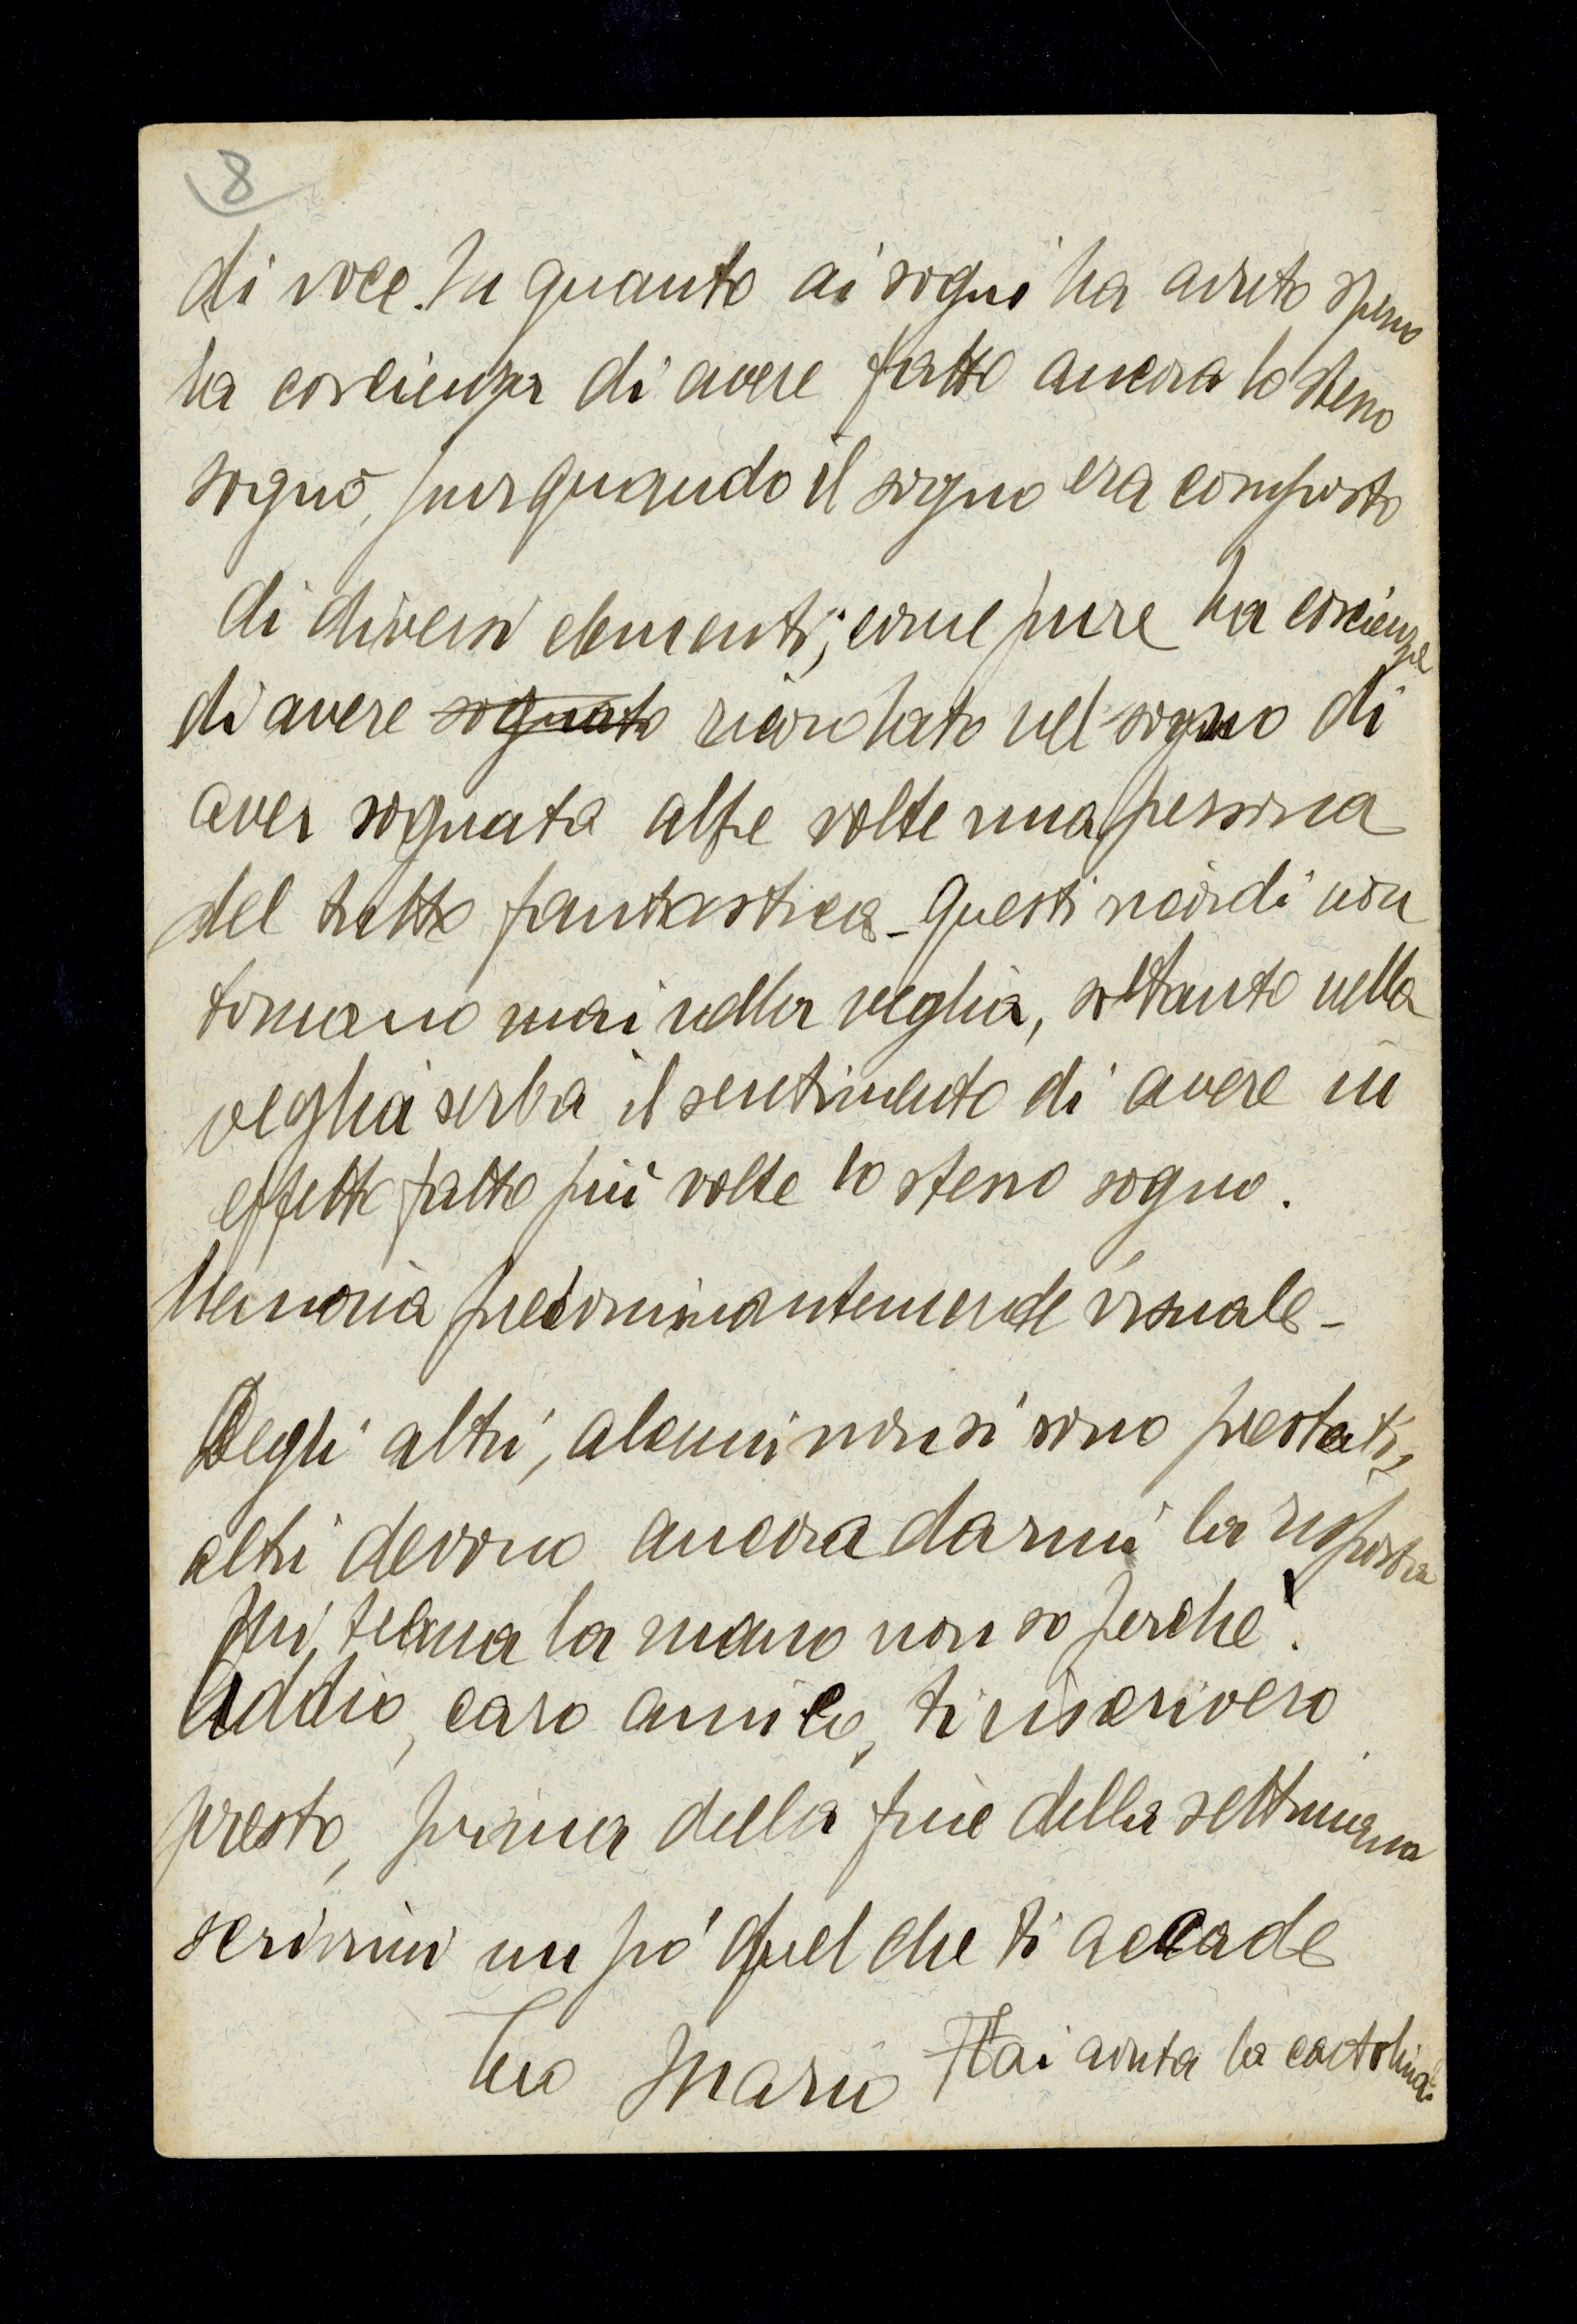 8
di voce. In quanto ai sogni ha avuto spesso
la coscienza di avere fatto ancora lo stesso
sogno, pur quando il sogno era composto
di diversi elementi; come pure ha coscienza
di avere sognato ricordato nel sogno di
aver sognata altre volte una persona
del tutto fantastica - Questi ricordi non
tornano mai nella veglia, soltanto nella
veglia serba il sentimento di avere in
effetto fatto più volte lo stesso sogno.
Memoria predominantemente visuale -
Degli altri, alcuni non si sono prestati,
altri devono ancora darmi la risposta
Mi trema la mano non so perchè.
Addio, caro amico, ti riscrivero
presto, prima della fine della settimana
scrivimi un po' quel che ti accade
Tuo Mario Hai avuta la cartolina?